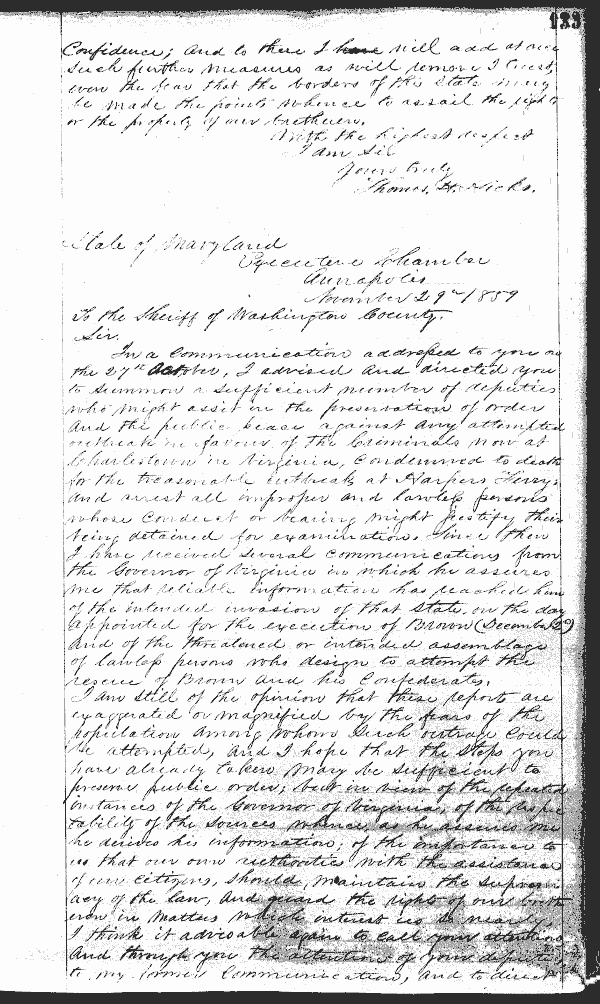 133
Confidence; and to these I have will add at once
such further measures as will remove I trust,
even the fear that the borders of the State may
be made the points whence to assail the rights
or the property of our brethren.
With the highest respect
I am Sir
Yours truly
Thomas. H. Hicks.
State of Maryland
Executive Chamber
Annapolis
November 29th 1859
To the Sheriff of Washington County.
Sir.
In a Communication addressed to you on
the 27th October, I advised and directed you
to summon a sufficient number of deputies
who might assist in the preservation of order
and the public peace against any attempted
outbreak in favour of the Criminals now at
Charlestown in Virginia, Condemned to death
for the treasonable outbreak at Harpers Ferry,
and arrest all improper and lawless persons
whose Conduct or bearing might justify their
being detained for examination. Since then
I have received several communications from
the Governor of Virginia in which he assures
me that reliable information has reached him
of the intended invasion of that State, on the day
appointed for the execution of Brown (December 2d)
and of the threatened or intended assemblage
of lawless persons who design to attempt the
rescue of Brown and his Confederates.
I am still of the opinion that these reports are
exaggerated or magnified by the fears of the
population among whom such outrage could
be attempted, and I hope that the steps you
have already taken may be sufficient to
preserve public order; but in view of the repeated
instances of the Governor of Virginia; of the respec
tability of the sources whence, as he assures me
he derives his information; of the importance to
us that our own authorities with the assistance
of our citizens, should, maintain the suprem
acy of the law, and guard the rights of our breth
ren in matters which interest us so nearly
I think it advisable again to call your attention
and through you the attention of your deputies
to my former Communication, and to direct